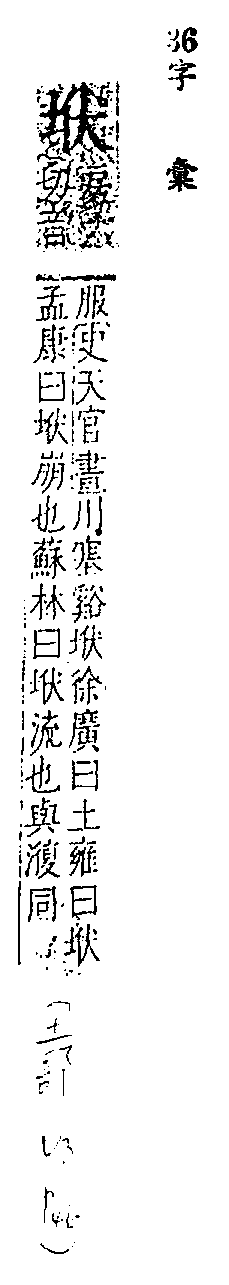 36字彙
垘
切音
服史天官畫川塞谿垘徐廣曰土雍曰垘
孟康曰垘崩也蘇林曰垘流也與澓同
(土部